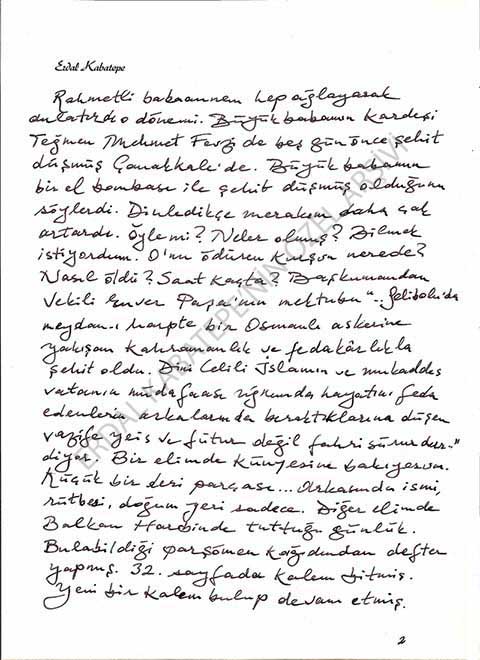 Erdal Kabatepe
Rahmetli babaannem hep ağlayarak
anlatırdı o dönemi. Büyük babamın kardeşi
Teğmen Mehmet Fevzi de beş gün önce şehit
düşmüş Çanakkale'de. Büyük babamın
bir el bombası ile şehit düşmüş olduğunu
söylerdi. Dinledikçe merakım daha çok
artardı. Öyle mi? Neler olmuş? Bilmek
istiyordum. O'nu öldüren kurşun nerede?
Nasıl öldü? Saat kaçta? Başkumandan
Vekili Enver Paşa'nın mektubu "... Gelibolu'da
meydan-ı harpte bir Osmanlı askerine
yakışan kahramanlık ve fedakârlıkla
şehit oldu. Dini Celili İslamın ve mukaddes
vatanın müdafaası uğrunda hayatını feda
edenlerin arkalarında bıraktıklarına düşen
vazife yeis ve fütur değil fahri sürurdur."
diyor. Bir elimde künyesine bakıyorum.
Küçük bir deri parçası... Arkasında ismi,
rütbesi, doğum yeri sadece. Diğer elimde
Balkan Harbinde tuttuğu günlük.
Bulabildiği parşömen kağıdından defter
yapmış. 32. sayfada kalem bitmiş.
Yeni bir kalem bulup devam etmiş.
2
ERDAL KABATEPE'NİN ÖZEL ARŞİVİ